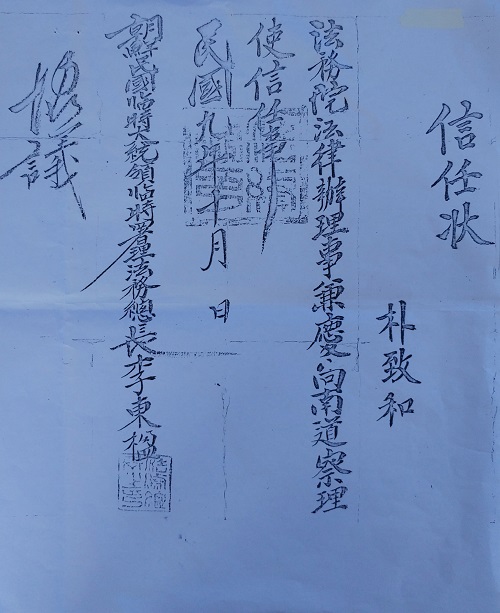 信任状
朴致和
法務院法律辦理事兼慶尙南道察理
使信任事
民國九年十月 日
朝鮮民國臨時大統領臨時署理法務總長李東楹
協議